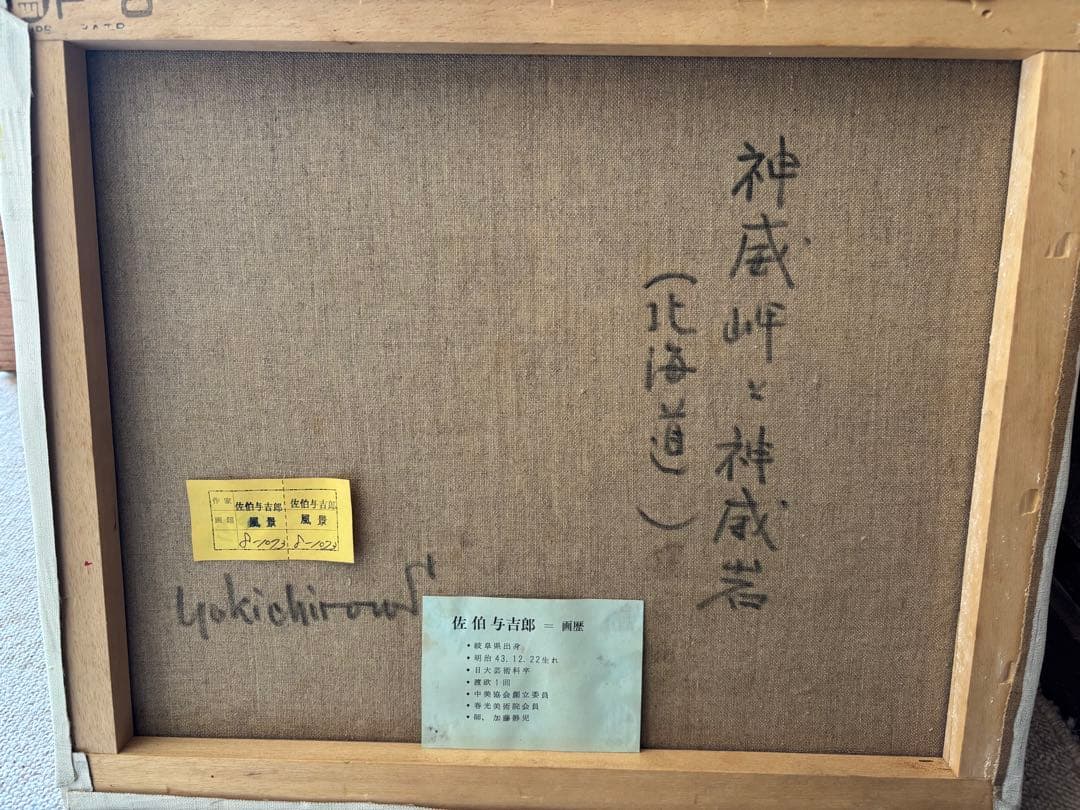 神威岬と神威岩
(北海道)
作家 佐伯与吉郎 佐伯与吉郎
画題 風景 風景
8-1073 8-1073
yokichirow S
佐伯与吉郎 = 画歴
• 岐阜県出身
• 明治43.12.22生れ
• 日大芸術科卒
• 渡欧1回
• 中美協会創立委員
• 春光美術院会員
• 師、加藤静児